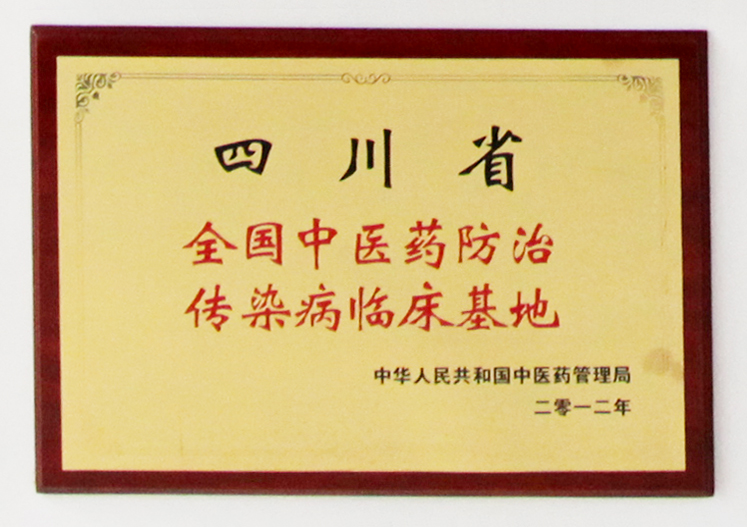 四川省
全国中医药防治
传染病临床基地
中华人民共和国中医药管理局
二零一二年